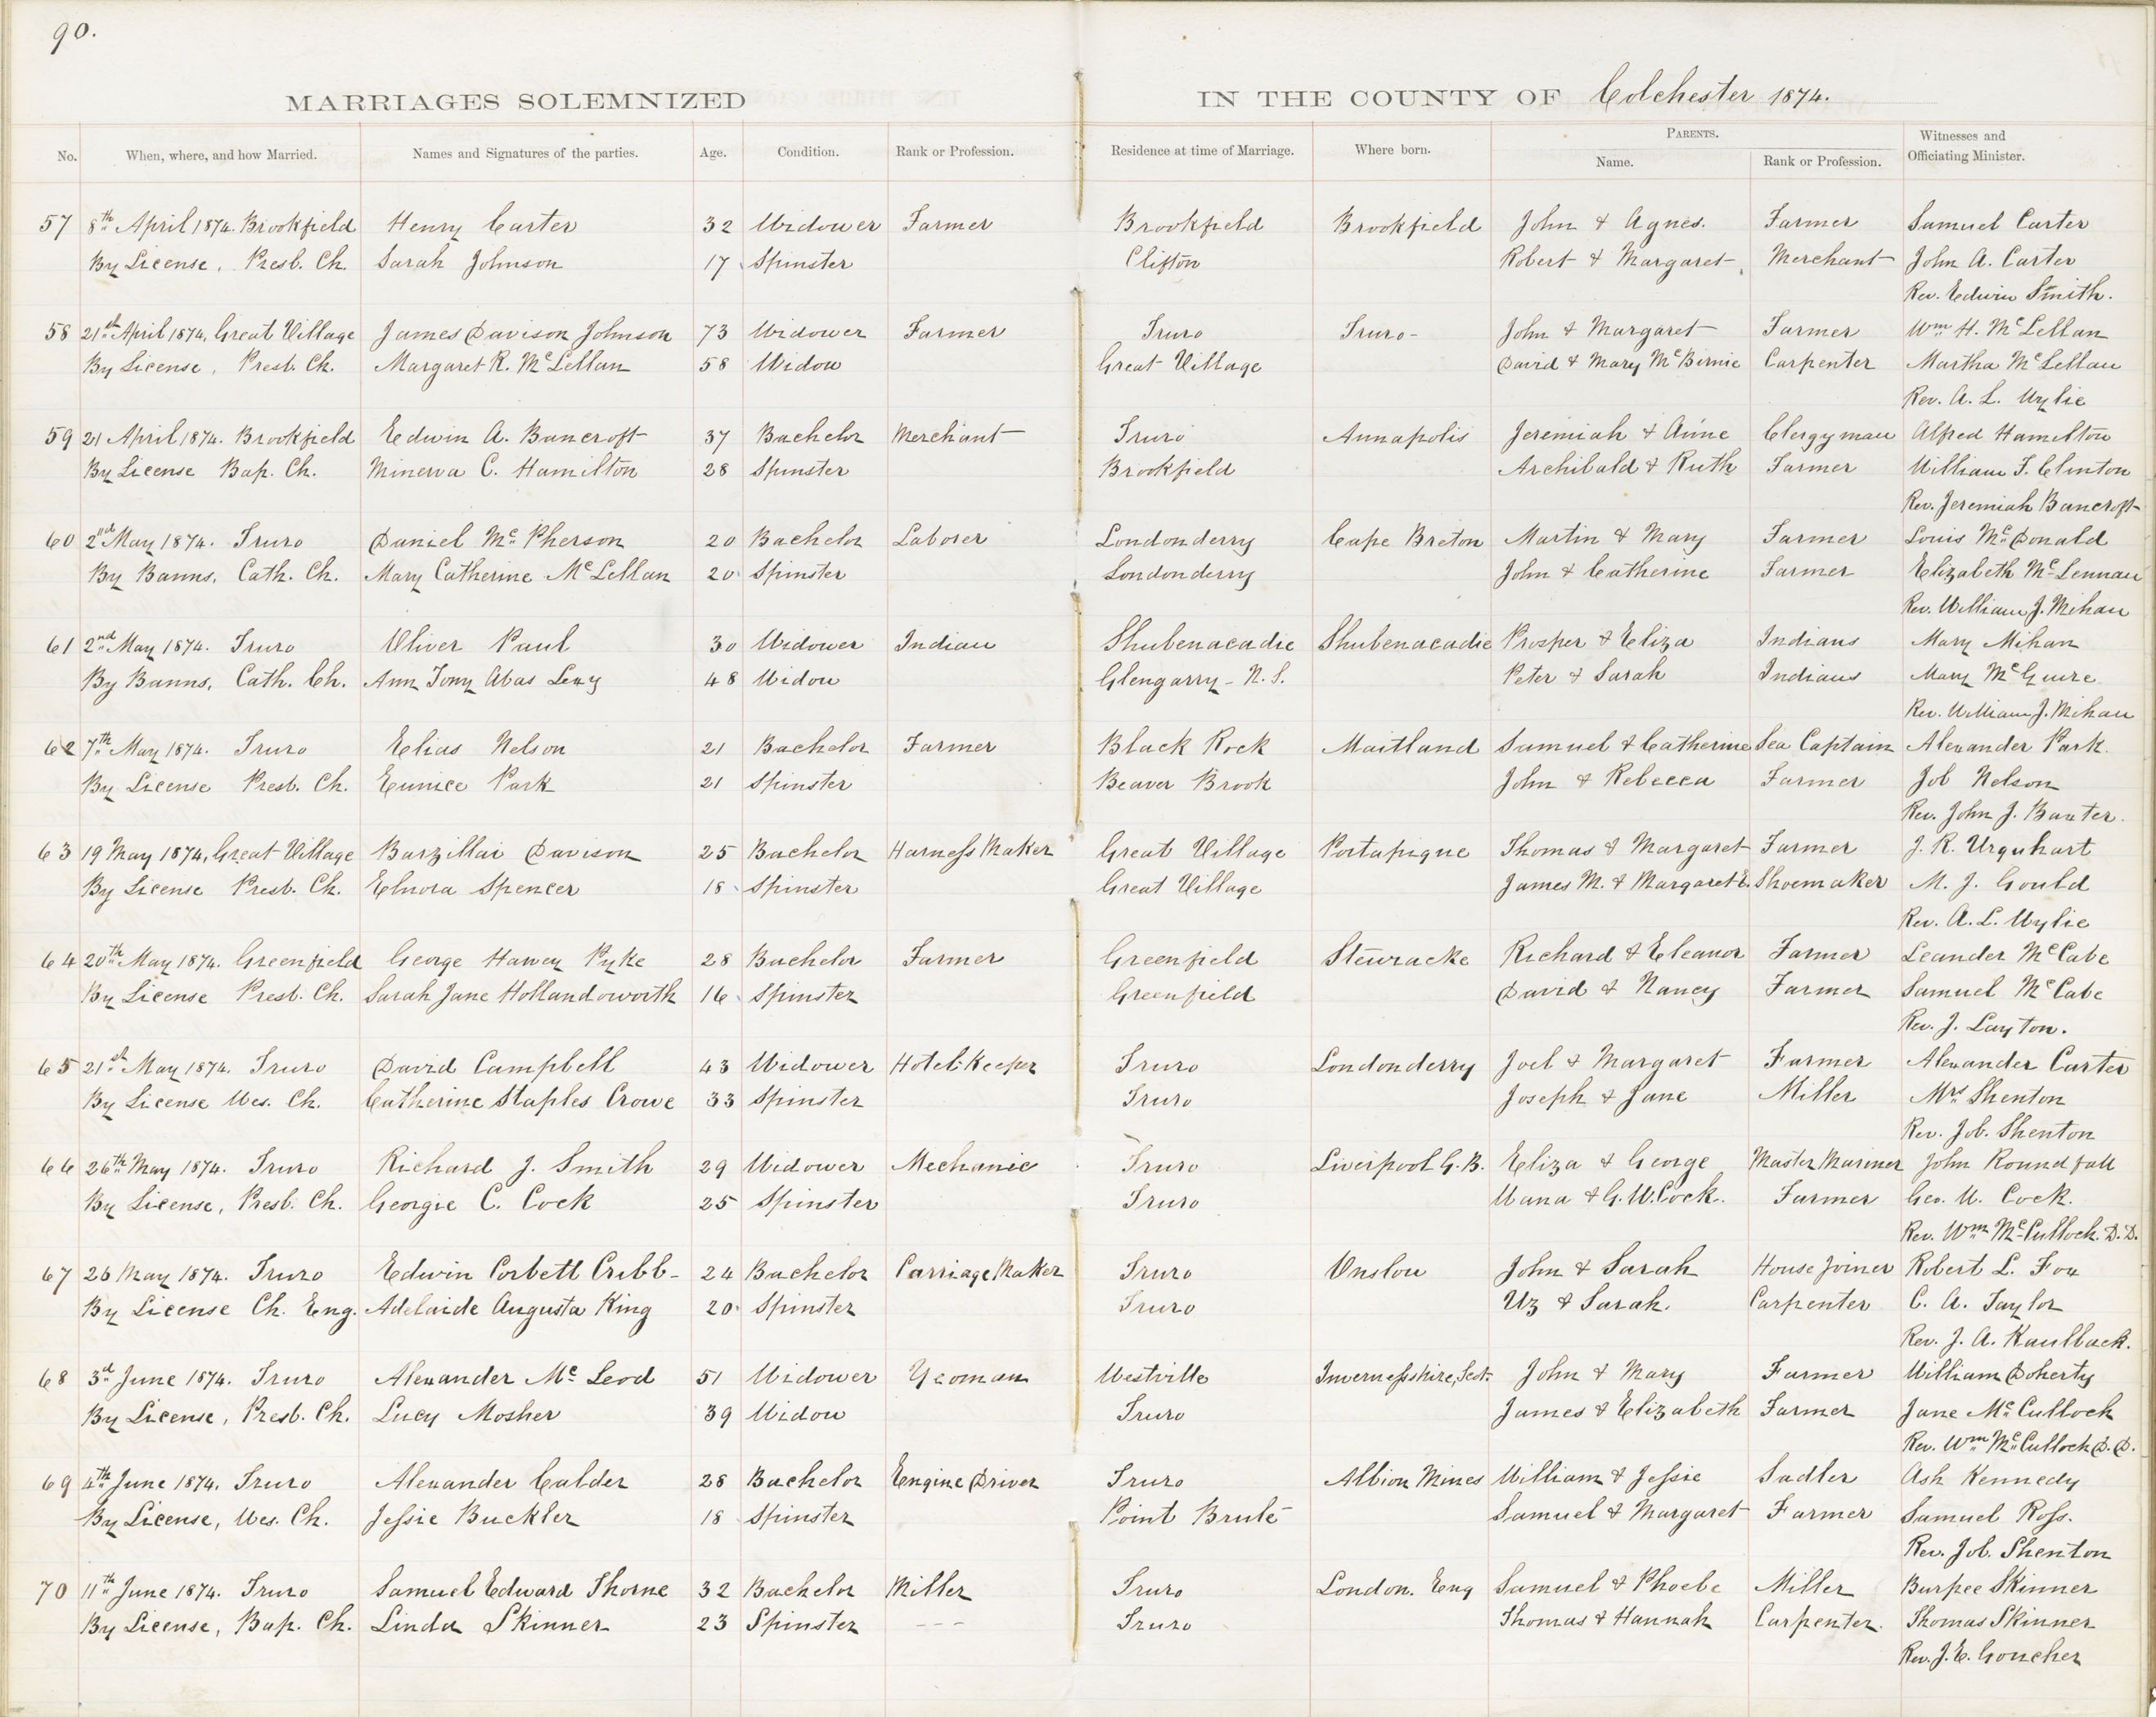 90.
MARRIAGES SOLEMNIZED IN THE COUNTY OF Colchester 1874.
No. When, where, and how Married. Names and Signatures of the parties. Age. Condition. Rank or Profession. Residence at time of Marriage. Where born. PARENTS. Name. Rank or Profession. Witnesses and Officiating Minister.
57 8th April 1874. Brookfield Henry Carter 32 Widower Farmer Brookfield Brookfield John & Agnes. Farmer Samuel Carter
By License, Presb. Ch. Sarah Johnson 17 Spinster Clifton Robert & Margaret Merchant John A. Carter
Rev. Edwin Smith.
58 21st April 1874, Great Village James Davison Johnson 73 Widower Farmer Truro Truro- John & Margaret Farmer Wm H. McLellan
By License, Presb. Ch. Margaret R. McLellan 58 Widow Great Village David & Mary McBirnie Carpenter Martha McLellan
Rev. A. L. Wylie
59 21 April 1874. Brookfield Edwin A. Bancroft 37 Bachelor Merchant Truro Annapolis Jeremiah & Anne Clergyman Alfred Hamilton
By License Bap. Ch. Minerva C. Hamilton 28 Spinster Brookfield Archibald & Ruth Farmer William F. Clinton
Rev. Jeremiah Bancroft
60 2nd May 1874. Truro Daniel McPherson 20 Bachelor Laborer Londonderry Cape Breton Martin & Mary Farmer Louis McDonald
By Banns, Cath. Ch. Mary Catherine McLellan 20 Spinster Londonderry John & Catherine Farmer Elizabeth McLennan
Rev. William J. Mihan
61 2nd May 1874. Truro Oliver Paul 30 Widower Indian Shubenacadie Shubenacadie Prosper & Eliza Indians Mary Mihan
By Banns, Cath. Ch. Ann Tony Abas 48 Widow Glengarry - N.S. Peter & Sarah Indians Mary McGuire
Rev. William J. Mihan
62 7th May 1874. Truro Elias Nelson 21 Bachelor Farmer Black Rock Maitland Samuel & Catherine Sea Captain Alexander Park.
By License Presb. Ch. Eunice Park 21 Spinster Beaver Brook John & Rebecca Farmer Job Nelson
Rev. John J. Baxter.
63 19 May 1874, Great Village Barzillai Davison 25 Bachelor Harness Maker Great Village Portapique Thomas & Margaret Farmer J. R. Urquhart
By License Presb. Ch. Elnora Spencer 18 Spinster Great Village James M. & Margaret E. Shoemaker M. J. Gould
Rev. A. L. Wylie
64 20th May 1874. Greenfield George Pyke 28 Bachelor Farmer Greenfield Stewiacke Richard & Eleanor Farmer Leander McCabe
By License Presb. Ch. Sarah Jane Hollandsworth 16 Spinster Greenfield David & Nancy Farmer Samuel McCabe
Rev. J. Layton.
65 21st May 1874. Truro David Campbell 43 Widower Hotel-Keeper Truro Londonderry Joel & Margaret Farmer Alexander Carter
By License Wes. Ch. Catherine Staples Crowe 33 Spinster Truro Joseph & Jane Miller Mrs Shenton
Rev. Job. Shenton
66 26th May 1874. Truro Richard J. Smith 29 Widower Mechanic Truro Liverpool G. B. Eliza & George Master Mariner John Roundfall
By License, Presb. Ch. Georgie C. Cock 25 Spinster Truro Wana & G. W. Cock. Farmer Geo. W. Cock.
Rev. Wm McCulloch. D.D.
67 26 May 1874. Truro Edwin Corbett Cribb- 24 Bachelor Carriage Maker Truro Onslow John & Sarah House Joiner Robert L. Fox
By License Ch. Eng. Adelaide Augusta King 20 Spinster Truro Uz & Sarah. Carpenter C. A. Taylor
Rev. J. A. Kaulback.
68 3d June 1874. Truro Alexander McLeod 51 Widower Yeoman Westville Invernessshire, Scot. John & Mary Farmer William Doherty
By License, Presb. Ch. Lucy Mosher 39 Widow Truro James & Elizabeth Farmer Jane McCulloch
Rev. Wm McCulloch D.D.
69 4th June 1874. Truro Alexander Calder 28 Bachelor Engine Driver Truro Albion Mines William & Jessie Sadler Ash Kennedy
By License, Wes. Ch. Jessie Buckler 18 Spinster Point Brulé Samuel & Margaret Farmer Samuel Ross.
Rev. Job. Shenton
70 11th June 1874. Truro Samuel Edward Thorne 32 Bachelor Miller Truro London. Eng Samuel & Phoebe Miller Burpee Skinner
By License, Bap. Ch. Linda Skinner 23 Spinster --- Truro Thomas & Hannah Carpenter. Thomas Skinner
Rev. J. E. Goucher